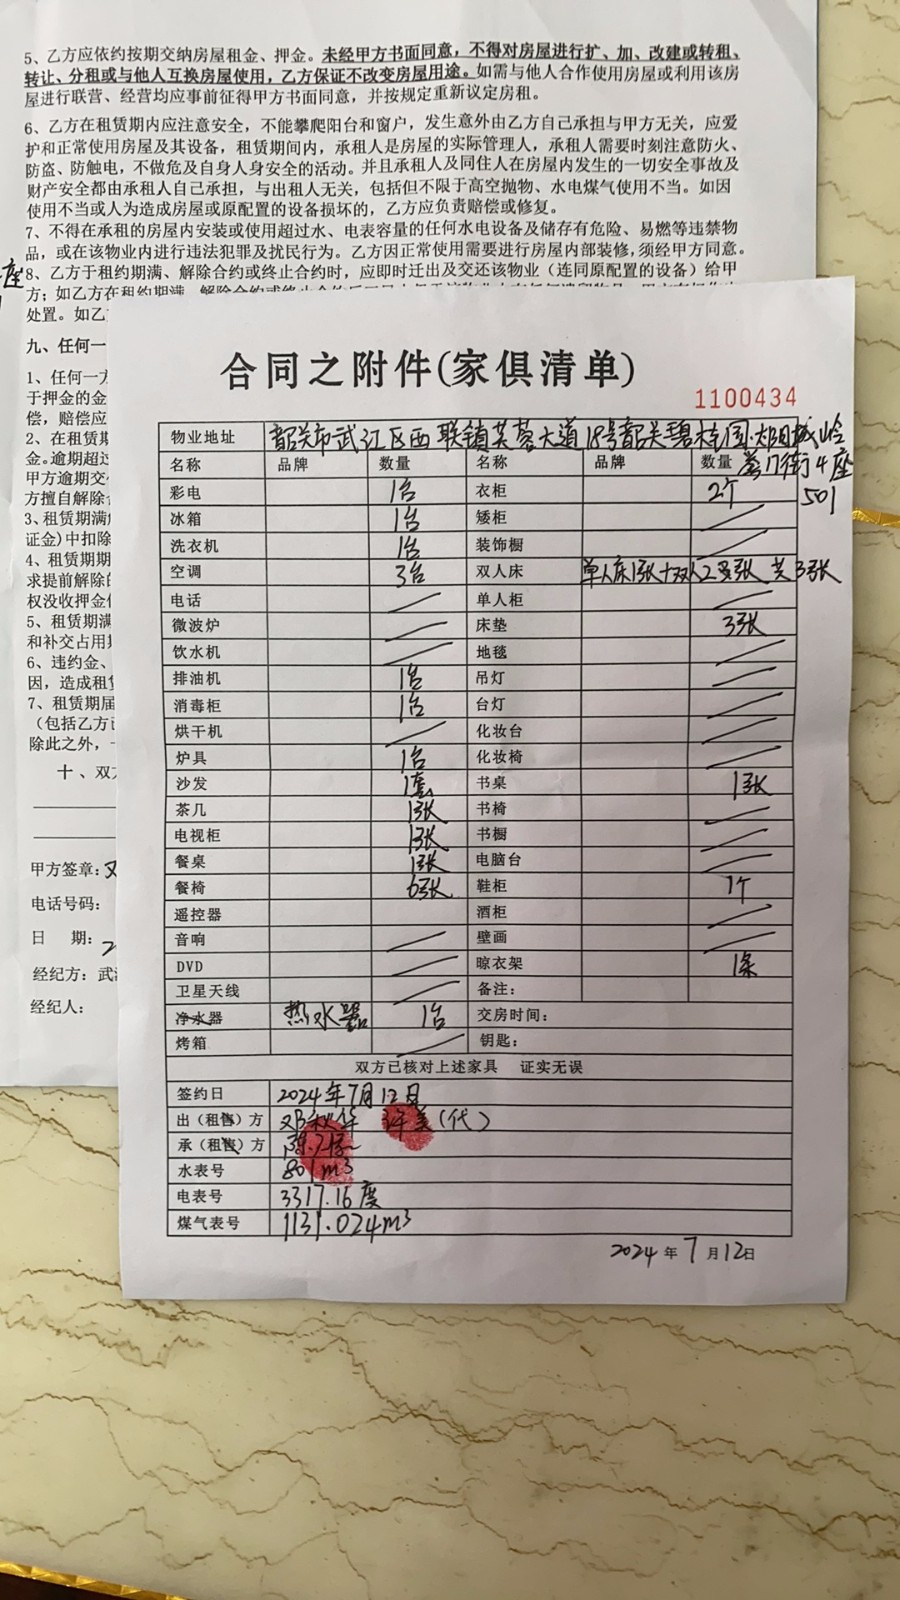 5、乙方应依约按期交纳房屋租金、押金。未经甲方书面同意，不得对房屋进行扩、加、改建或转租、
转让、分租或与他人互换房屋使用，乙方保证不改变房屋用途。如需与他人合作使用房屋或利用该房
屋进行联营、经营均应事前征得甲方书面同意，并按规定重新议定房租。
6、乙方在租赁期内应注意安全，不能攀爬阳台和窗户，发生意外由乙方自己承担与甲方无关，应爱
护和正常使用房屋及其设备，租赁期间内，承租人是房屋的实际管理人，承租人需要时刻注意防火、
防盗、防触电，不做危及自身人身安全的活动。并且承租人及同住人在房屋内发生的一切安全事故及
财产安全都由承租人自己承担，与出租人无关，包括但不限于高空抛物、水电煤气使用不当。如因
使用不当或人为造成房屋或原配置的设备损坏的，乙方应负责赔偿或修复。
7、不得在承租的房屋内安装或使用超过水、电表容量的任何水电设备及储存有危险、易燃等违禁物
品，或在该物业内进行违法犯罪及扰民行为。乙方因正常使用需要进行房屋内部装修，须经甲方同意。
座
8、乙方于租约期满、解除合约或终止合约时，应即时迁出及交还该物业（连同原配置的设备）给甲
方；如乙方在租约期满
处置。如乙
九、任何一
1、任何一方
于押金的金
偿，赔偿应
2、在租赁期
金。逾期超过
甲方逾期交
方擅自解除
3、租赁期满
证金)中扣除
4、租赁期期
求提前解除的
权没收押金
5、租赁期满
和补交占用
6、违约金、
因，造成租赁
7、租赁期届
（包括乙方已
除此之外，
十、双方
甲方签章：邓
电话号码：
日 期：
经纪方：武
经纪人：
合同之附件(家俱清单)
1100434
物业地址 韶关市武江区西联镇芙蓉大道18号韶关碧桂园·太阳城岭
荟门街4座
501
名称 品牌 数量 名称 品牌 数量
彩电 1台 衣柜 2个
冰箱 1台 矮柜
洗衣机 1台 装饰橱
空调 3台 双人床 单人床1张+双人2张 共3张
电话 单人柜
微波炉 床垫 3张
饮水机 地毯
排油机 1台 吊灯
消毒柜 1台 台灯
烘干机 化妆台
炉具 1台 化妆椅
沙发 1套 书桌 1张
茶几 1张 书椅
电视柜 1张 书橱
餐桌 1张 电脑台
餐椅 6张 鞋柜 1个
遥控器 酒柜
音响 壁画
DVD 晾衣架 1条
卫星天线 备注：
净水器 热水器 1台 交房时间：
烤箱 钥匙：
双方已核对上述家具 证实无误
签约日 2024年7月12日
出（租售）方 邓秋华 许美(代)
承（租售）方
水表号 801m³
电表号 3317.16度
煤气表号 1131.024m³
2024年7月12日